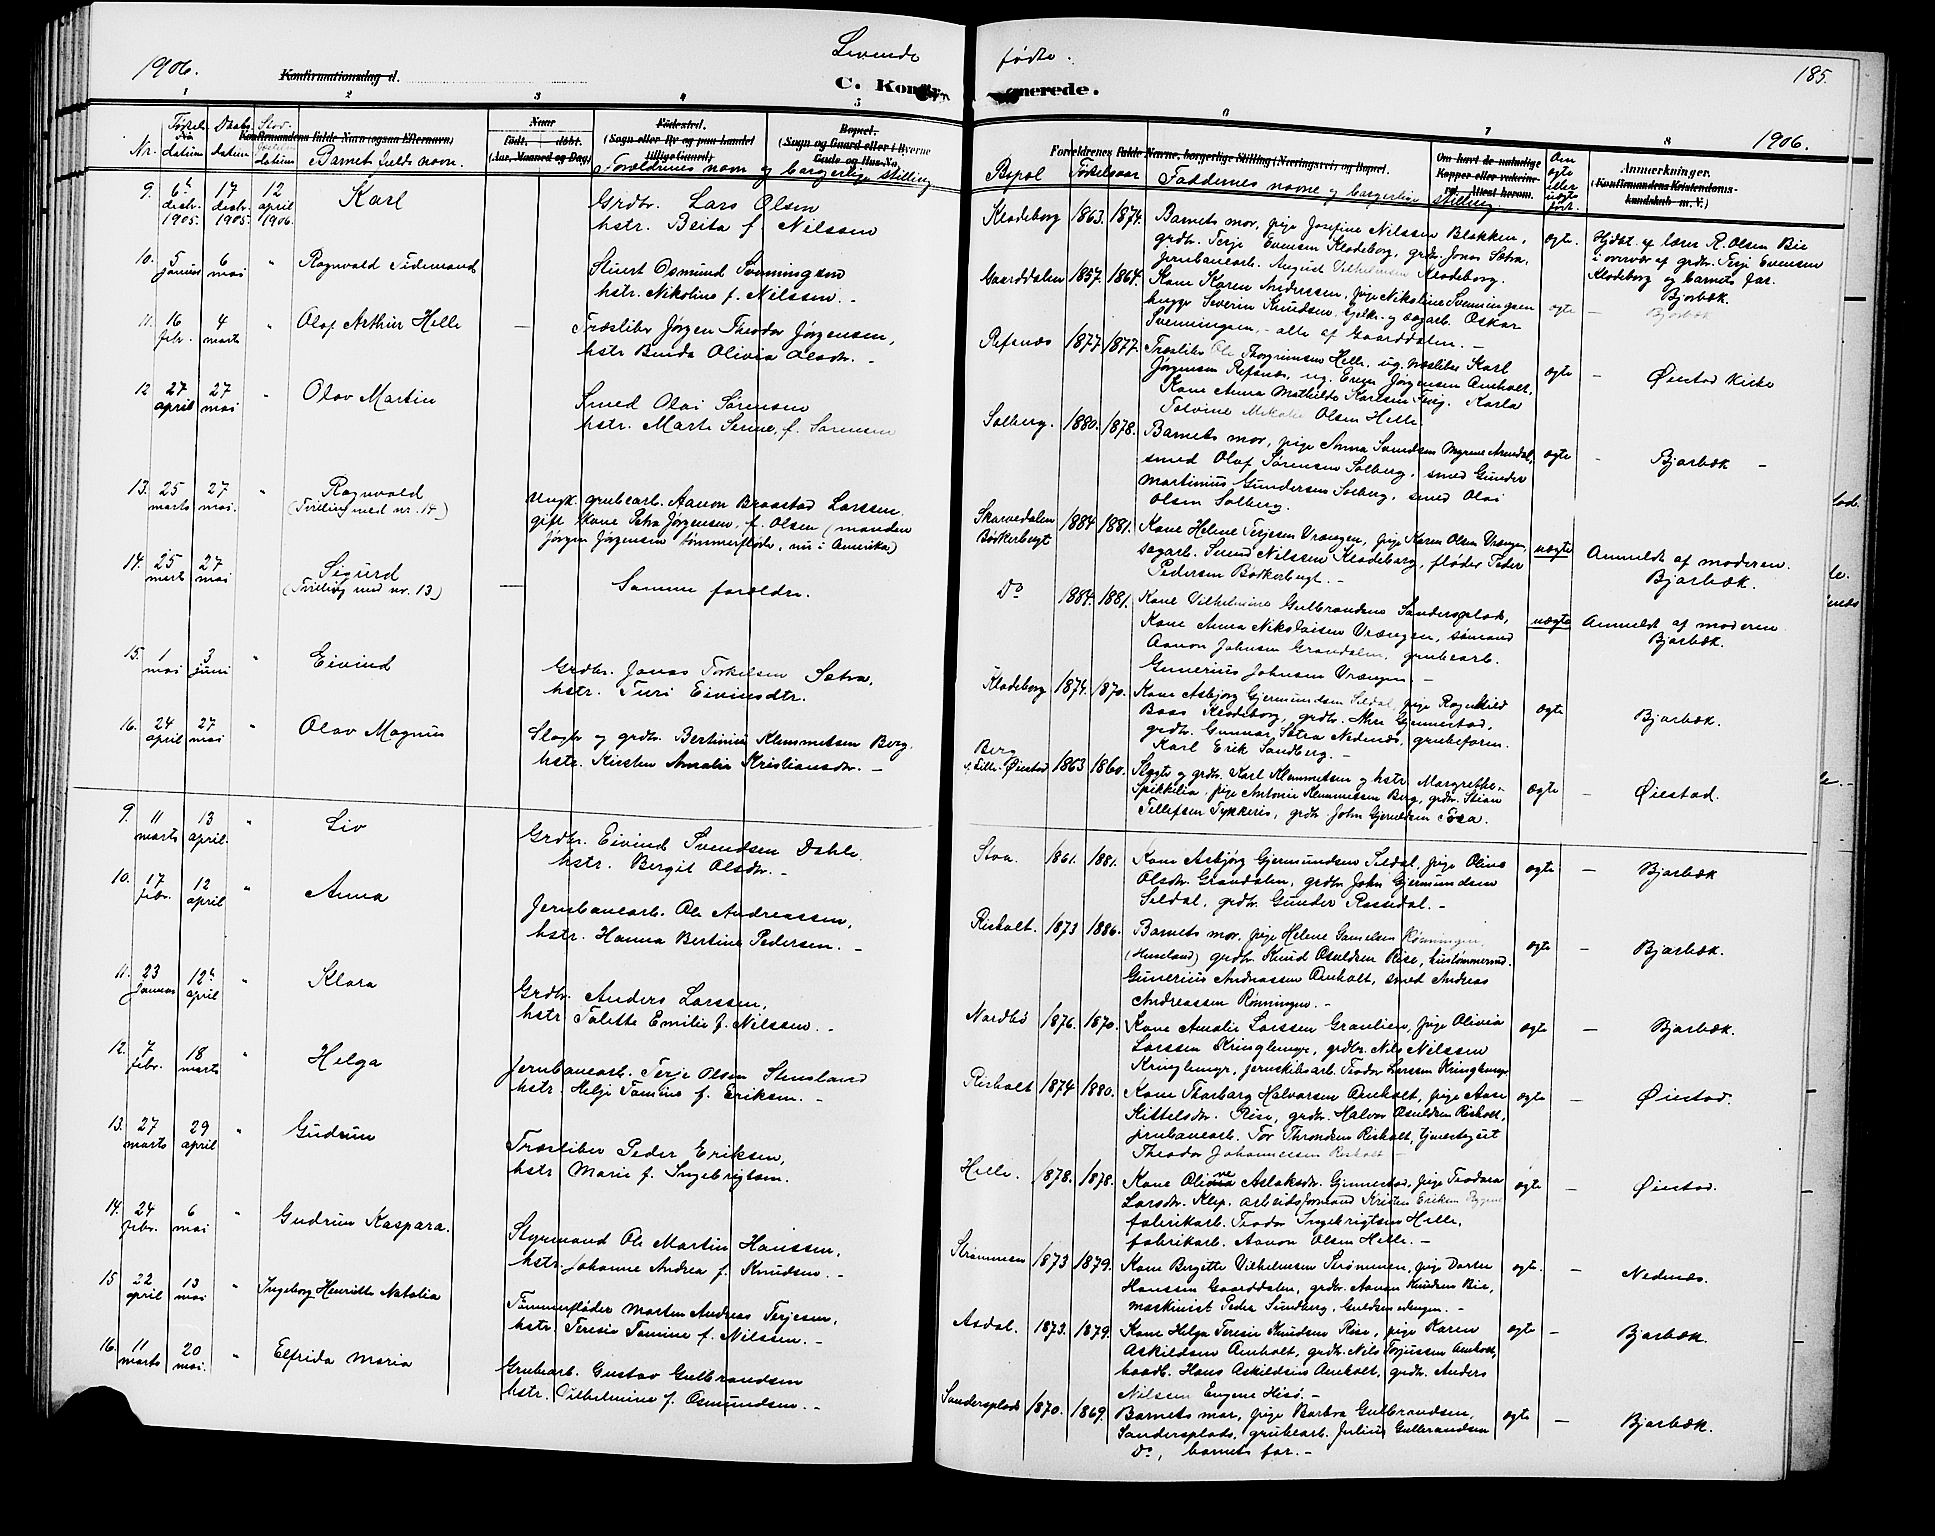 1906.
Konfirmationsdag d.
Levende fødte.
C. Kon merede.
185.
1906.
1 2 3 4 5 6 7 8
Nr. Fødsels datum Daabs datum Stad datum Barnets fulde navn.
Konfirmandens fulde Navn (ogsaa Efternavn)
Naar
født. døbt.
(Aar, Maaned og Dag)
Fødested.
(Sogn eller By og paa Landet tillige Gaard)
Bopæl.
(Sogn og Gaard eller i Byerne Gade og Hus-No.
Forældrenes navn og borgerlige stilling
Forældrenes fulde Navne, borgerlige Stilling (Næringsvei) og Bopæl.
Bopæl Fødselsaar Faddernes navne og borgerlige stilling.
Om havt de naturlige Kopper eller vakcineret. Attest herom.
Om ægte eller uægte født.
Anmærkninger.
(Konfirmandens Kristendomskundskab m. V.)
9. 6te decbr. 1905. 17 decbr. 1905. 12 april 1906. Karl
Grdbr. Lars Olsen
hstr. Beita f. Nilssen
Klodeborg 1863. 1874.
Barnets mor, pige Josefine Nilssen Blakken,
grdbr. Terje Evensen Klodeborg, grdbr. Jonas Sætra,
jernbanearb. August Vilhelmsen Klodeborg.
ægte.
Hjdøbt af lærer R. Olsen Bie
i overvær af grdbr. Terje Evensen
Klodeborg og barnets far.
Bjorbæk.
10. 5 januar 6 mai " Ragnvald Tidemand
Stuert Osmund Svenningsen
hstr. Nikoline f. Nilssen. -
Gaarddalen 1857. 1864.
Kone Karen Anderssen, pige Nikoline Svenningsen
hugger Severin Knudsen, Gjelk. og sagarb. Oskar
Svenningsen, - alle af Gaarddalen. -
ægte - Bjorbæk
11. 16 febr. 4 marts " Olaf Arthur Helle -
Træsliber Jørgen Theodor Jørgensen,
hstr. Benda Olivia Olsdr. -
Refsnæs 1877. 1877.
Træsliber Ole Thorgrimsen Helle, ug. træsliber Karl
Jørgensen Refsnæs, ug. Even Jørgensen Amholt,
Kone Anna Mathilde Karlsen Krig. Karla
Tolvine Mikalie Olsen Helle
ægte - Øiestad kirke
12 27 april 27 mai " Olav Martin
Smed Olai Sørensen
hstr. Marte Serine, f. Sørensen
Solberg. 1880. 1878.
Barnets mor, pige Anna Svendsen Myrene Arendal,
smed Olaf Sørensen Solberg, smed Gunder
Martinius Gundersen Solberg, smed Olai
Olsen Solberg.
ægte - Bjorbæk -
13. 25 marts 27 mai. " Ragnvald
(Tvilling med nr. 14)
Ungk. grubearb. Aanon Braastad Larssen.
gift Kone Petra Jørgensen, f. Olsen (manden
Jørgen Jørgensen tømmerfløder, nu i Amerika)
Skarvedalen Bødkerbergt 1884 1881.
Kone Helene Terjesen Vrængen, pige Karen Olsen Vrængen,
sagarb. Svend Nilssen Klodeborg, fløder Peder
Pedersen Bødkerbergt. -
uægte Anmeldt af moderen.
Bjorbæk.
14. 25 marts 27 mai Sigurd
(Tvilling med nr. 13) -
Samme forældre.
Do 1884. 1881.
Kone Vilhelmine Gulbrandsen Sandersplads,
Kone Anna Nikolaisen Vrængen, sømand
Aanon Johnsen Grandalen, grubearb.
Gunerius Johnsen Vrængen -
uægte Anmeldt af moderen
Bjorbæk.
15. 1 mai 3 juni " Eivind
Grdbr. Jonas Torkelsen Sætra,
hstr. Turi Eivindsdtr.
Klodeborg 1874. 1870.
Kone Asbjørg Gjermundsen Seldal, pige Ragnhild
Baas Klodeborg, grdbr. Gjennestad,
grdbr. Gunnar Sætra Nedenes, grubeform.
Karl Erik Sandberg. -
ægte Bjorbæk.
16. 24 april 27 mai " Olav Magnus
Slagter og grdbr. Bertinius Klemmetsen Berg.
hstr. Kirsten Amalie Kristiansdr. -
Berg Øiestad 1863 1860.
Slagter og grdbr. Karl Klemmetsen og hstr. Margrethe
Spikkelia, pige Antonie Klemmetsen Berg, grdbr. Stian
Tellefsen Tykkeris, grdbr. John Gjeruldsen Tøsa.
ægte - Øiestad.
9. 11 marts 13 april. " Liv
Grdbr. Eivind Svendsen Dahle.
hstr. Bergit Olsdr. -
Stoa. 1861. 1881.
Kone Asbjørg Gjermundsen Seldal, pige Olive
Olsdr. Grandalen, grdbr. John Gjermundsen
Seldal, grdbr. Gunder Rossedal. -
ægte - Bjorbæk
10. 17 febr. 12 april " Anna
Jernbanearb. Ole Andreassen,
hstr. Hanna Bertine Pedersen. -
Risholt. 1873 1886.
Barnets mor, pige Helene Gamelsen Rønningen,
(Huseland) grdbr. Knud Osuldsen Rise, hustømmermd.
Gunerius Andreassen Amholt, smed Andreas
Andreassen Rønningen. -
ægte - Bjorbæk.
11. 23 januar 12te april " Klara
Grdbr. Anders Larssen,
hstr. Talette Emilie f. Nilssen. -
Nordbø 1876. 1870.
Kone Amalie Larssen Graulien, pige Olivia
Larssen Kringlemyr, grdbr. Nils Nilssen
Kringlemyr, jernskibsarb. Teodor Larssen Kringlemyr
ægte - Bjorbæk.
12. 7 febr. 18 marts " Helga
Jernbanearb. Terje Olsen Stensland
hstr. Helje Tomine f. Eriksen. -
Risholt 1874 1880.
Kone Thorbarg Halvorsen Amholt, pige Aase
Kittelsdr. Rise, grdbr. Halvor Osuldsen Risholt,
jernbanearb. Tor Throndsen Risholt, tjenestegut
Theodor Johannessen Risholt -
ægte - Øiestad.
13. 27 marts 29 april " Gudrun
Træsliber Peder Eriksen,
hstr. Marie f. Ingebrigtsen.
Helle. 1878. 1878.
Kone Olivve Aslaksdr. Gjennestad, pige Teodora
Larsdr. Klep. arbeidsformand Kristen Eriksen
fabrikarb. Teodor Ingebrigtsen Helle,
fabrikarb. Aanon Olsen Helle. -
ægte - Øiestad.
14. 24 febr. 6 mai " Gudrun Kaspara.
Styrmand Ole Martin Hanssen,
hstr. Johanne Andrea f. Knudsen. -
Strømmen 1873 1879.
Kone Birgitte Vilhelmsen Strømmen, pige Dorte
Hanssen Gaarddalen, grdbr. Aanon Knudsen Bie,
maskinist Peder Sundberg, Guldsmedengen. -
ægte. - Nedenæs.
15 22 april 13 mai " Ingeborg Henriette Natalia
Tømmerfløder Morten Andreas Terjesen,
hstr. Teresie Tomine f. Nilssen. -
Asdal. 1873. 1879.
Kone Helga Teresie Knudsen Rise, pige Karen
Askildsen Amholt, grdbr. Nils Torjussen Amholt,
baadb. Hans Askildsen Amholt, grdbr. Anders
Nilssen Eugene Hisø. -
ægte - Bjorbæk.
16. 11 marts 20 mai. " Elfrida Maria
Grubearb. Gustav Gulbrandsen
hstr. Vilhelmine f. Osmundsen. -
Sandersplads 1870. 1869.
Barnets mor, pige Barbra Gulbrandsen,
Sandersplads, grubearb. Julius Gulbrandsen
Do, barnets far. -
ægte - Bjorbæk.